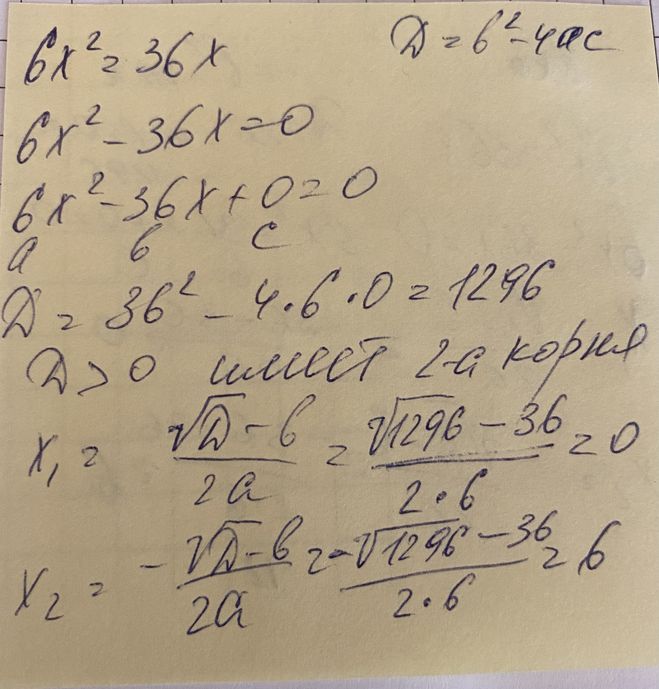 6x² = 36x
D = b² - 4ac
6x² - 36x = 0
6x² - 36x + 0 = 0
a b c
D = 36² - 4·6·0 = 1296
D > 0 имеет 2-а корня
x₁ = (√D - b)/(2a) = (√1296 - 36)/(2·6) = 0
x₂ = (-√D - b)/(2a) = (-√1296 - 36)/(2·6) = 6